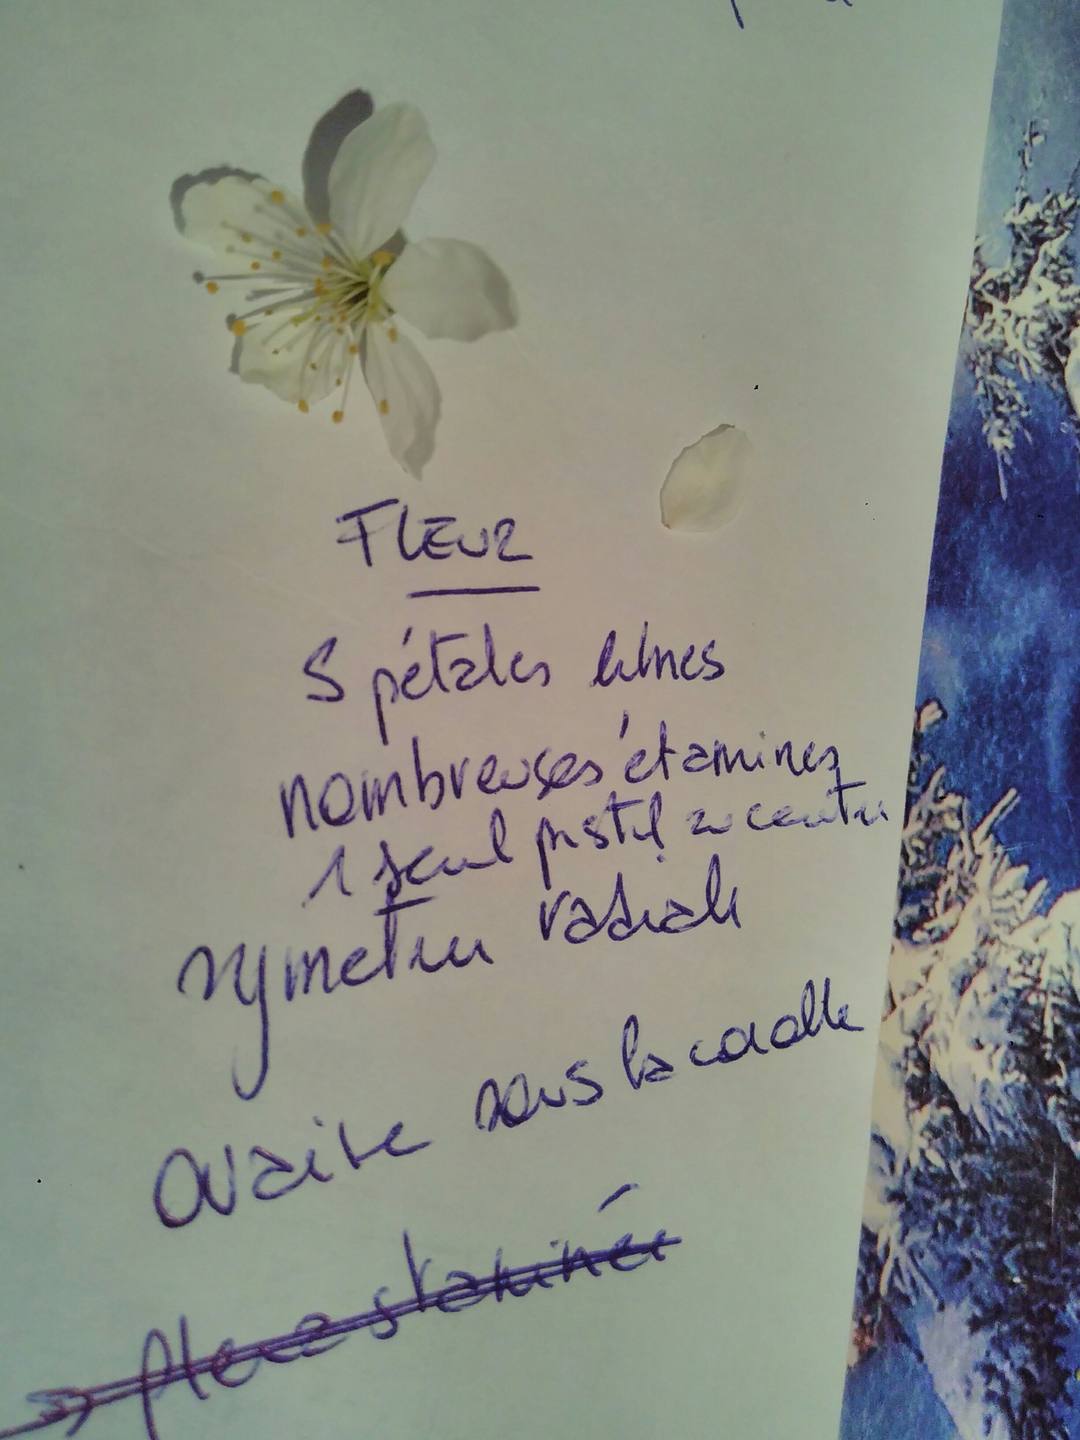 FLEUR
5 pétales libres
nombreuses étamines
1 seul pistil au centre
symetrie radiale
ovaire sous la corolle
=> fleur staminée